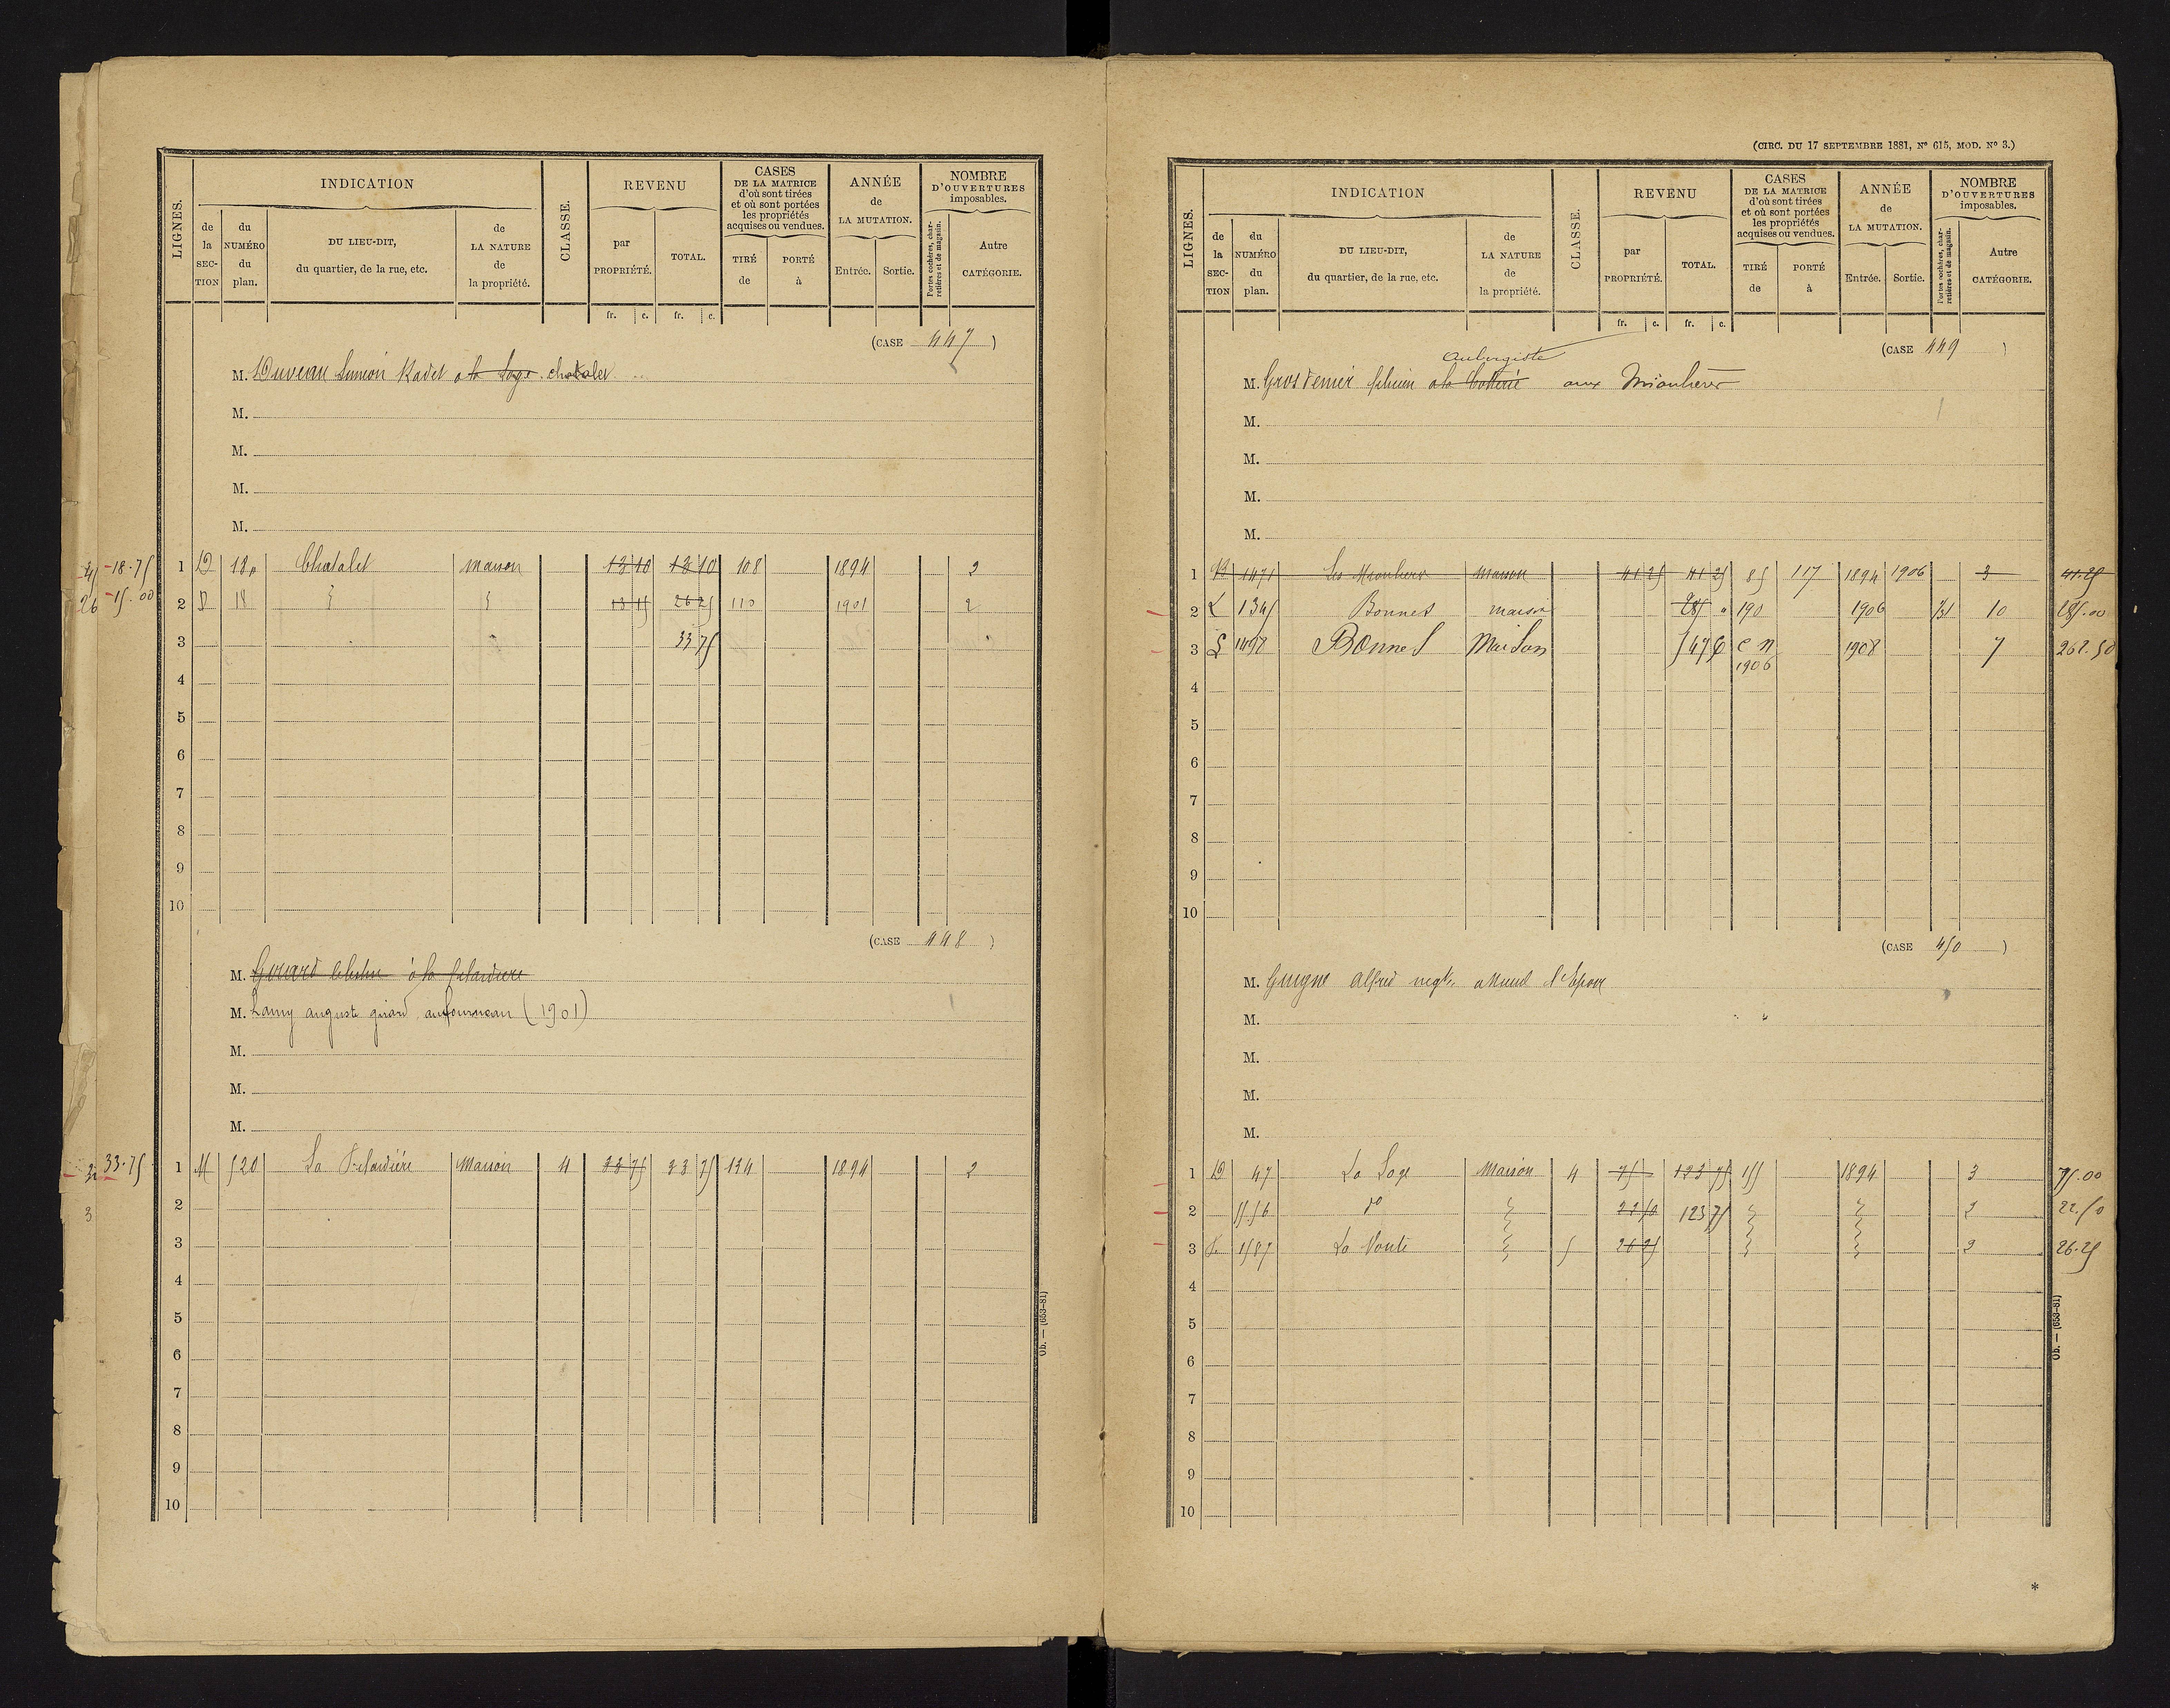 LIGNES. INDICATION CLASSE. REVENU CASES DE LA MATRICE d'où sont tirées et où sont portées les propriétés acquises ou vendues. ANNÉE de LA MUTATION. NOMBRE D'OUVERTURES imposables.
de la SECTION du NUMÉRO du plan. DU LIEU-DIT, du quartier, de la rue, etc. de LA NATURE de la propriété. par PROPRIÉTÉ. TOTAL. TIRÉ de PORTÉ à Entrée. Sortie. Portes cochères, charretières et de magasin. Autre CATÉGORIE.
fr. c. fr. c.
(CASE 447 )
M. Duveau Siméon Kadet a la Loge
M.
M.
M.
M.
18.75 1 D 18p Chatalet maison 13 10 13 10 108 1894 2
26 15.00 2 D 18 13 15 26 25 110 1901 2
3 33 75
4
5
6
7
8
9
10
(CASE 448 )
M. à la
M. Lamy auguste girard au fourneau (1901)
M.
M.
M.
33.75 1 M 520 La Maison 4 33 75 33 75 134 1894 2
3 2
3
4
5
6
7
8
9
10
Ob. — (653-81)
(CIRC. DU 17 SEPTEMBRE 1881, Nº 615, MOD. Nº 3.)
LIGNES. INDICATION CLASSE. REVENU CASES DE LA MATRICE d'où sont tirées et où sont portées les propriétés acquises ou vendues. ANNÉE de LA MUTATION. NOMBRE D'OUVERTURES imposables.
de la SECTION du NUMÉRO du plan. DU LIEU-DIT, du quartier, de la rue, etc. de LA NATURE de la propriété. par PROPRIÉTÉ. TOTAL. TIRÉ de PORTÉ à Entrée. Sortie. Portes cochères, charretières et de magasin. Autre CATÉGORIE.
fr. c. fr. c.
(CASE 449 )
Aubergiste
M. Grosdenier a la aux
M.
M.
M.
M.
1 1471 Les maison 41 25 41 25 85 117 1894 1906 3 41.25
2 1345 Bonnet maison 285 " 190 1906 10 285.00
3 1498 Bonnet Maison 547 C n 1908 7 262.50
1906
4
5
6
7
8
9
10
(CASE 450 )
M. Guigne Alfred negt.
M.
M.
M.
M.
1 D 47 La Loge Maison 4 75 123 75 155 1894 3 75.00
2 do 22 50 123 75 2 22.50
3 1587 La Voute 5 26 25 2 26.25
4
5
6
7
8
9
10
Ob. — (653-81)
*